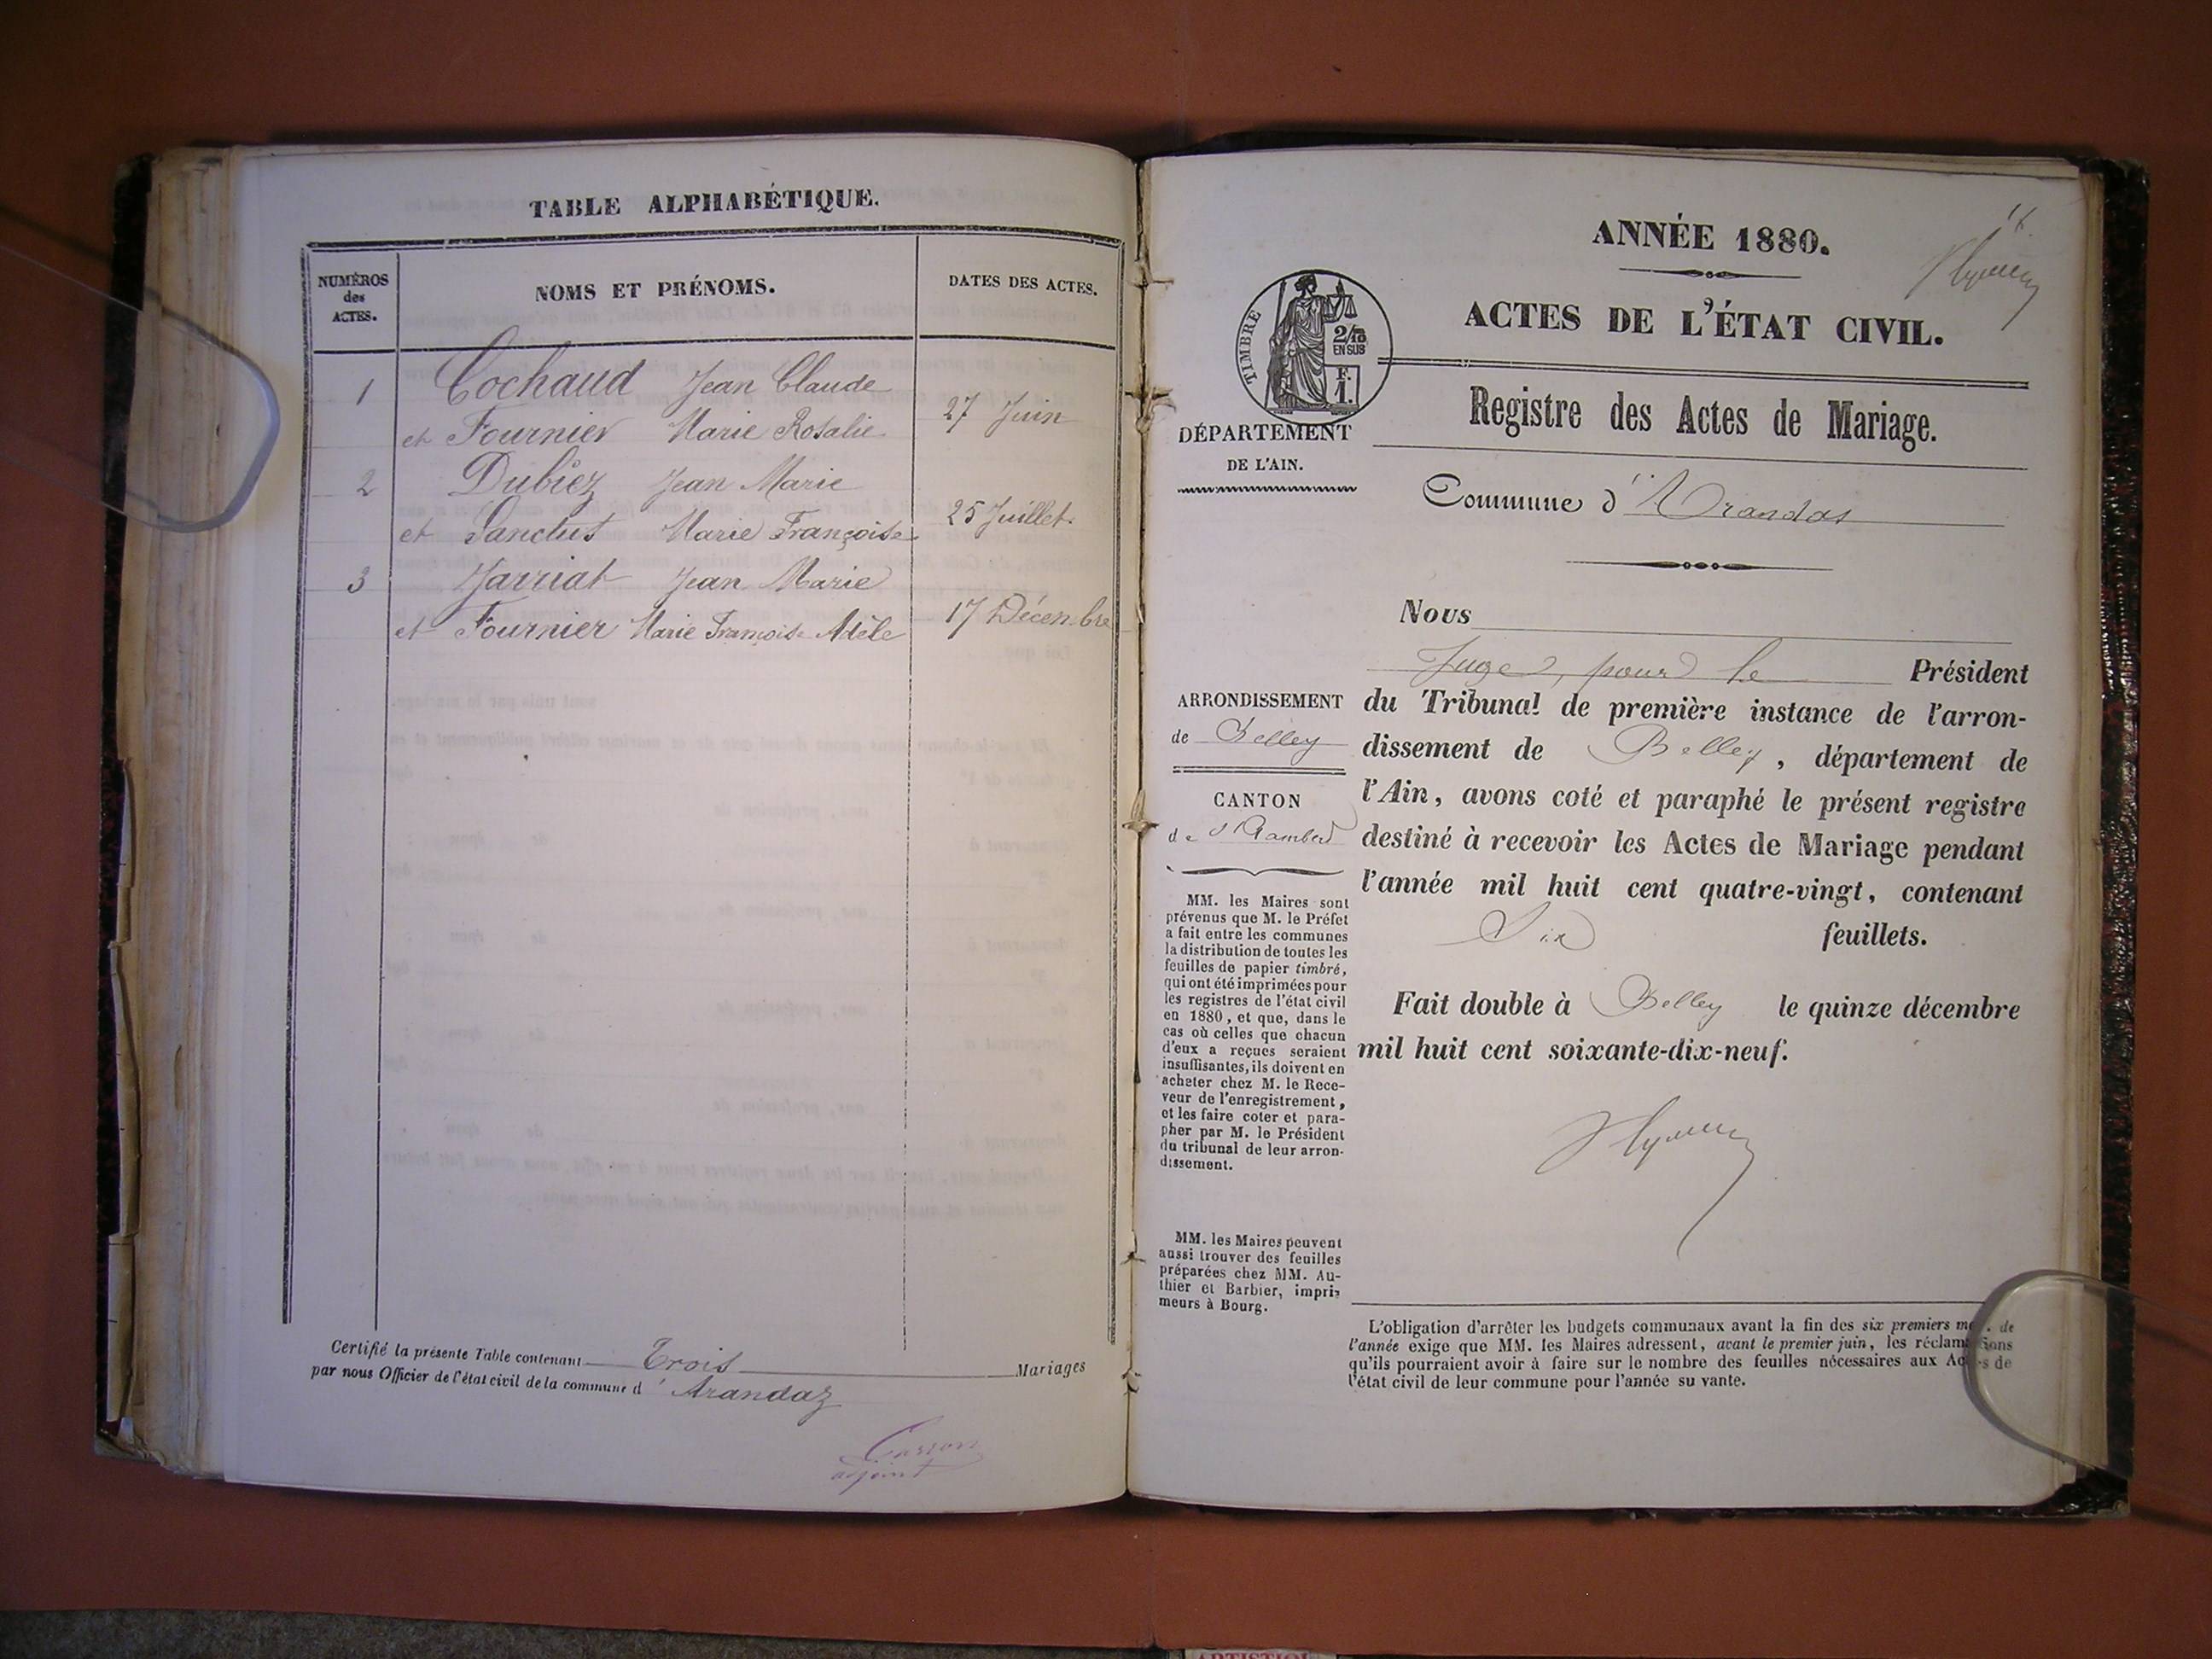 TABLE ALPHABÉTIQUE.
NUMÉROS
des
ACTES.
NOMS ET PRÉNOMS.
DATES DES ACTES.
1 Cochaud Jean Claude
et Fournier Marie Rosalie 27 Juin
2 Dubiez Jean Marie
et Sanctus Marie Françoise 25 Juillet.
3 Jarriat Jean Marie
et Fournier Marie Françoise Adèle 17 Décembre
Certifié la présente Table contenant Trois Mariages
par nous Officier de l'état civil de la commune d' Arandaz
adjoint
ANNÉE 1880.
ACTES DE L'ÉTAT CIVIL.
TIMBRE
2/10
EN SUS
F.
1.
Registre des Actes de Mariage.
DÉPARTEMENT
DE L'AIN.
Commune d' Arandas
Nous
Juge, pour le Président
du Tribunal de première instance de l'arron-
dissement de Belley, département de
l'Ain, avons coté et paraphé le présent registre
destiné à recevoir les Actes de Mariage pendant
l'année mil huit cent quatre-vingt, contenant
Six feuillets.
Fait double à Belley le quinze décembre
mil huit cent soixante-dix-neuf.
ARRONDISSEMENT
de Belley
CANTON
de St Rambert
MM. les Maires sont
prévenus que M. le Préfet
a fait entre les communes
la distribution de toutes les
feuilles de papier timbré,
qui ont été imprimées pour
les registres de l'état civil
en 1880, et que, dans le
cas où celles que chacun
d'eux a reçues seraient
insuffisantes, ils doivent en
acheter chez M. le Rece-
veur de l'enregistrement,
et les faire coter et para-
pher par M. le Président
du tribunal de leur arron-
dissement.
MM. les Maires peuvent
aussi trouver des feuilles
préparées chez MM. Au-
thier et Barbier, impri-
meurs à Bourg.
L'obligation d'arrêter les budgets communaux avant la fin des six premiers de
l'année exige que MM. les Maires adressent, avant le premier juin, les réclamations
qu'ils pourraient avoir à faire sur le nombre des feuilles nécessaires aux Actes de
l'état civil de leur commune pour l'année su vante.